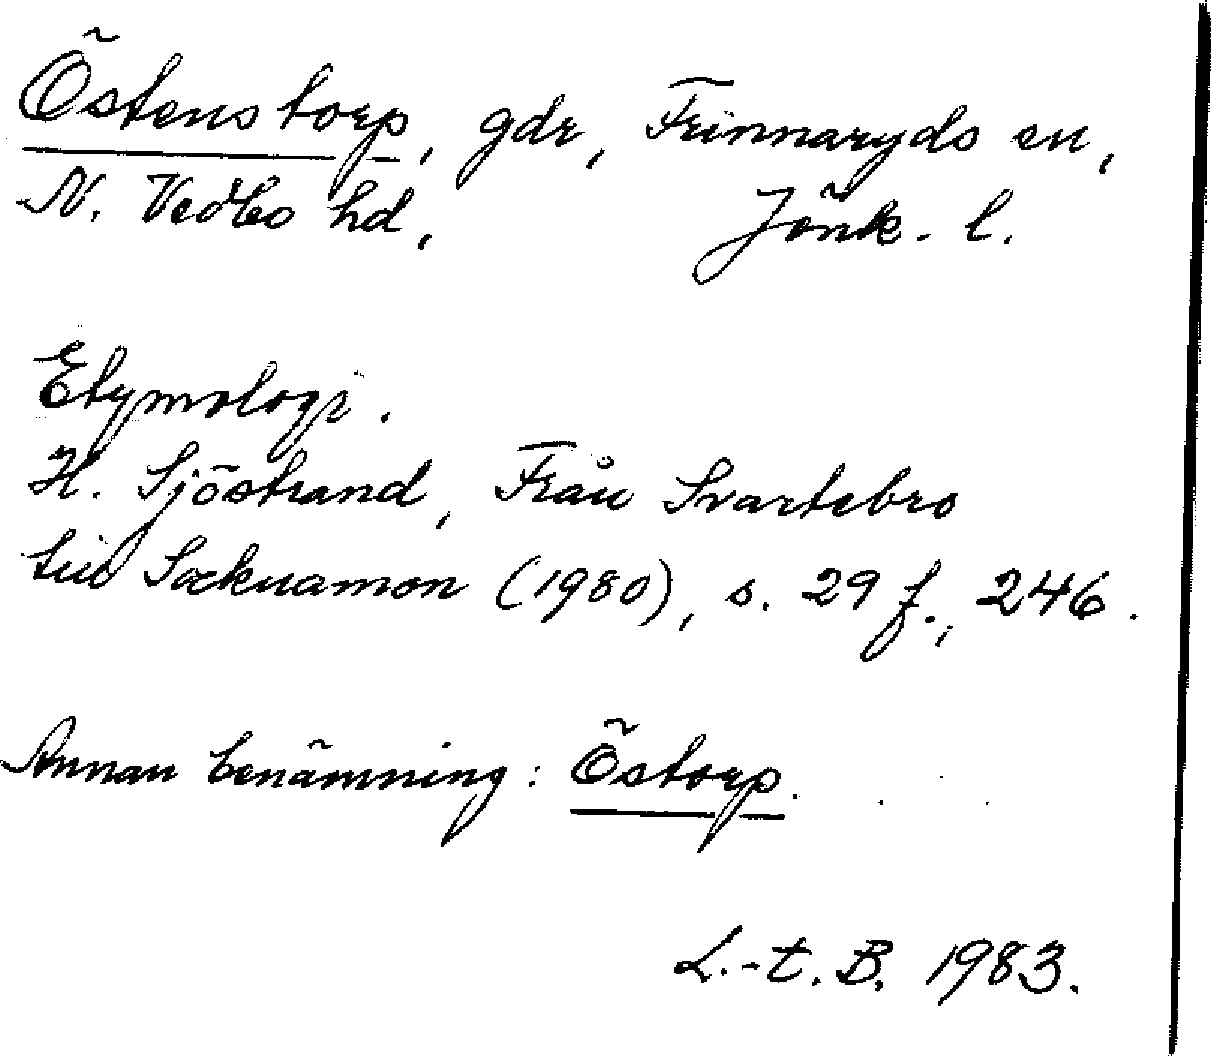 Östenstorp, gdr, Frinnaryds sn,
N. Vedbo hd, Jönk. l.
Etymologi.
H. Sjöstrand, Från Svartebro
till Socknamon (1980), s. 29 f., 246.
Annan benämning: Östorp.
L.-t. B. 1983.